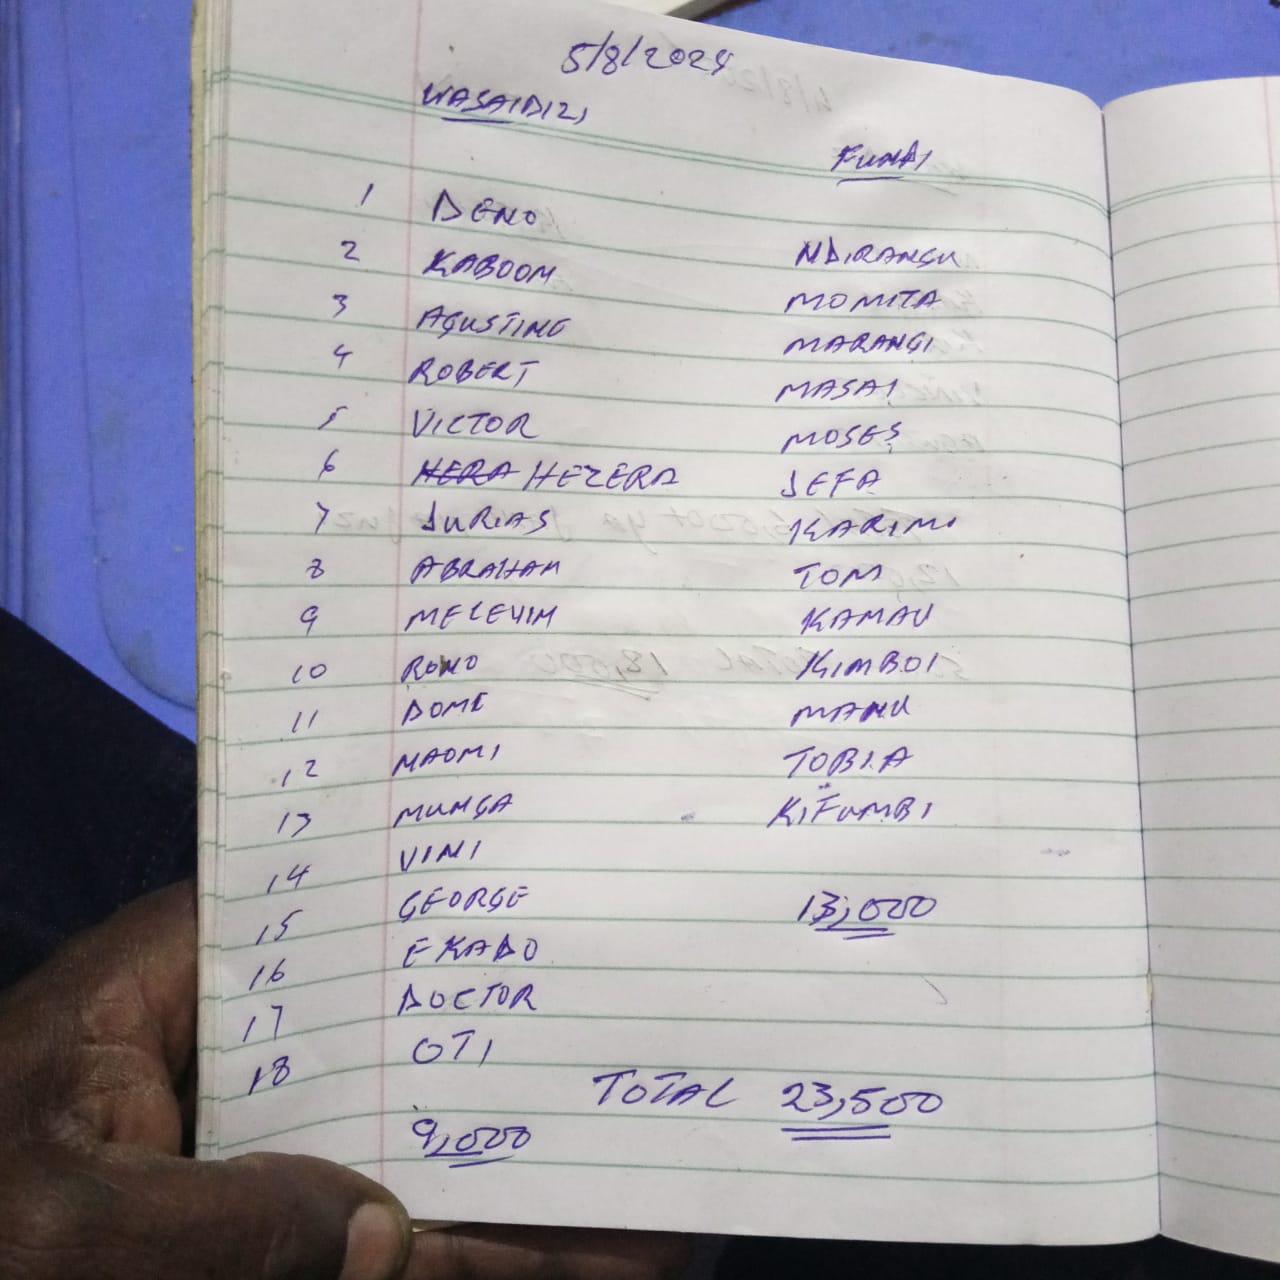 5/8/2024
WASAIDIZI
FUNDI
1 DENO
2 KABOOM NDIRANGU
3 AGUSTINE MOMITA
4 ROBERT MARANGI
5 VICTOR MASAI
6 HEZERA MOSES
7 JURIAS JEFA
8 ABRAHAM KARIMI
9 MELEVIM TOM
10 RONO KAMAU
11 DOME KIMBOI
12 NAOMI MANU
13 MUNGA TOBIA
14 VINI KIFUMBI
15 GEORGE 13,000
16 EKADO
17 DOCTOR
18 OTI
TOTAL 23,500
9,000